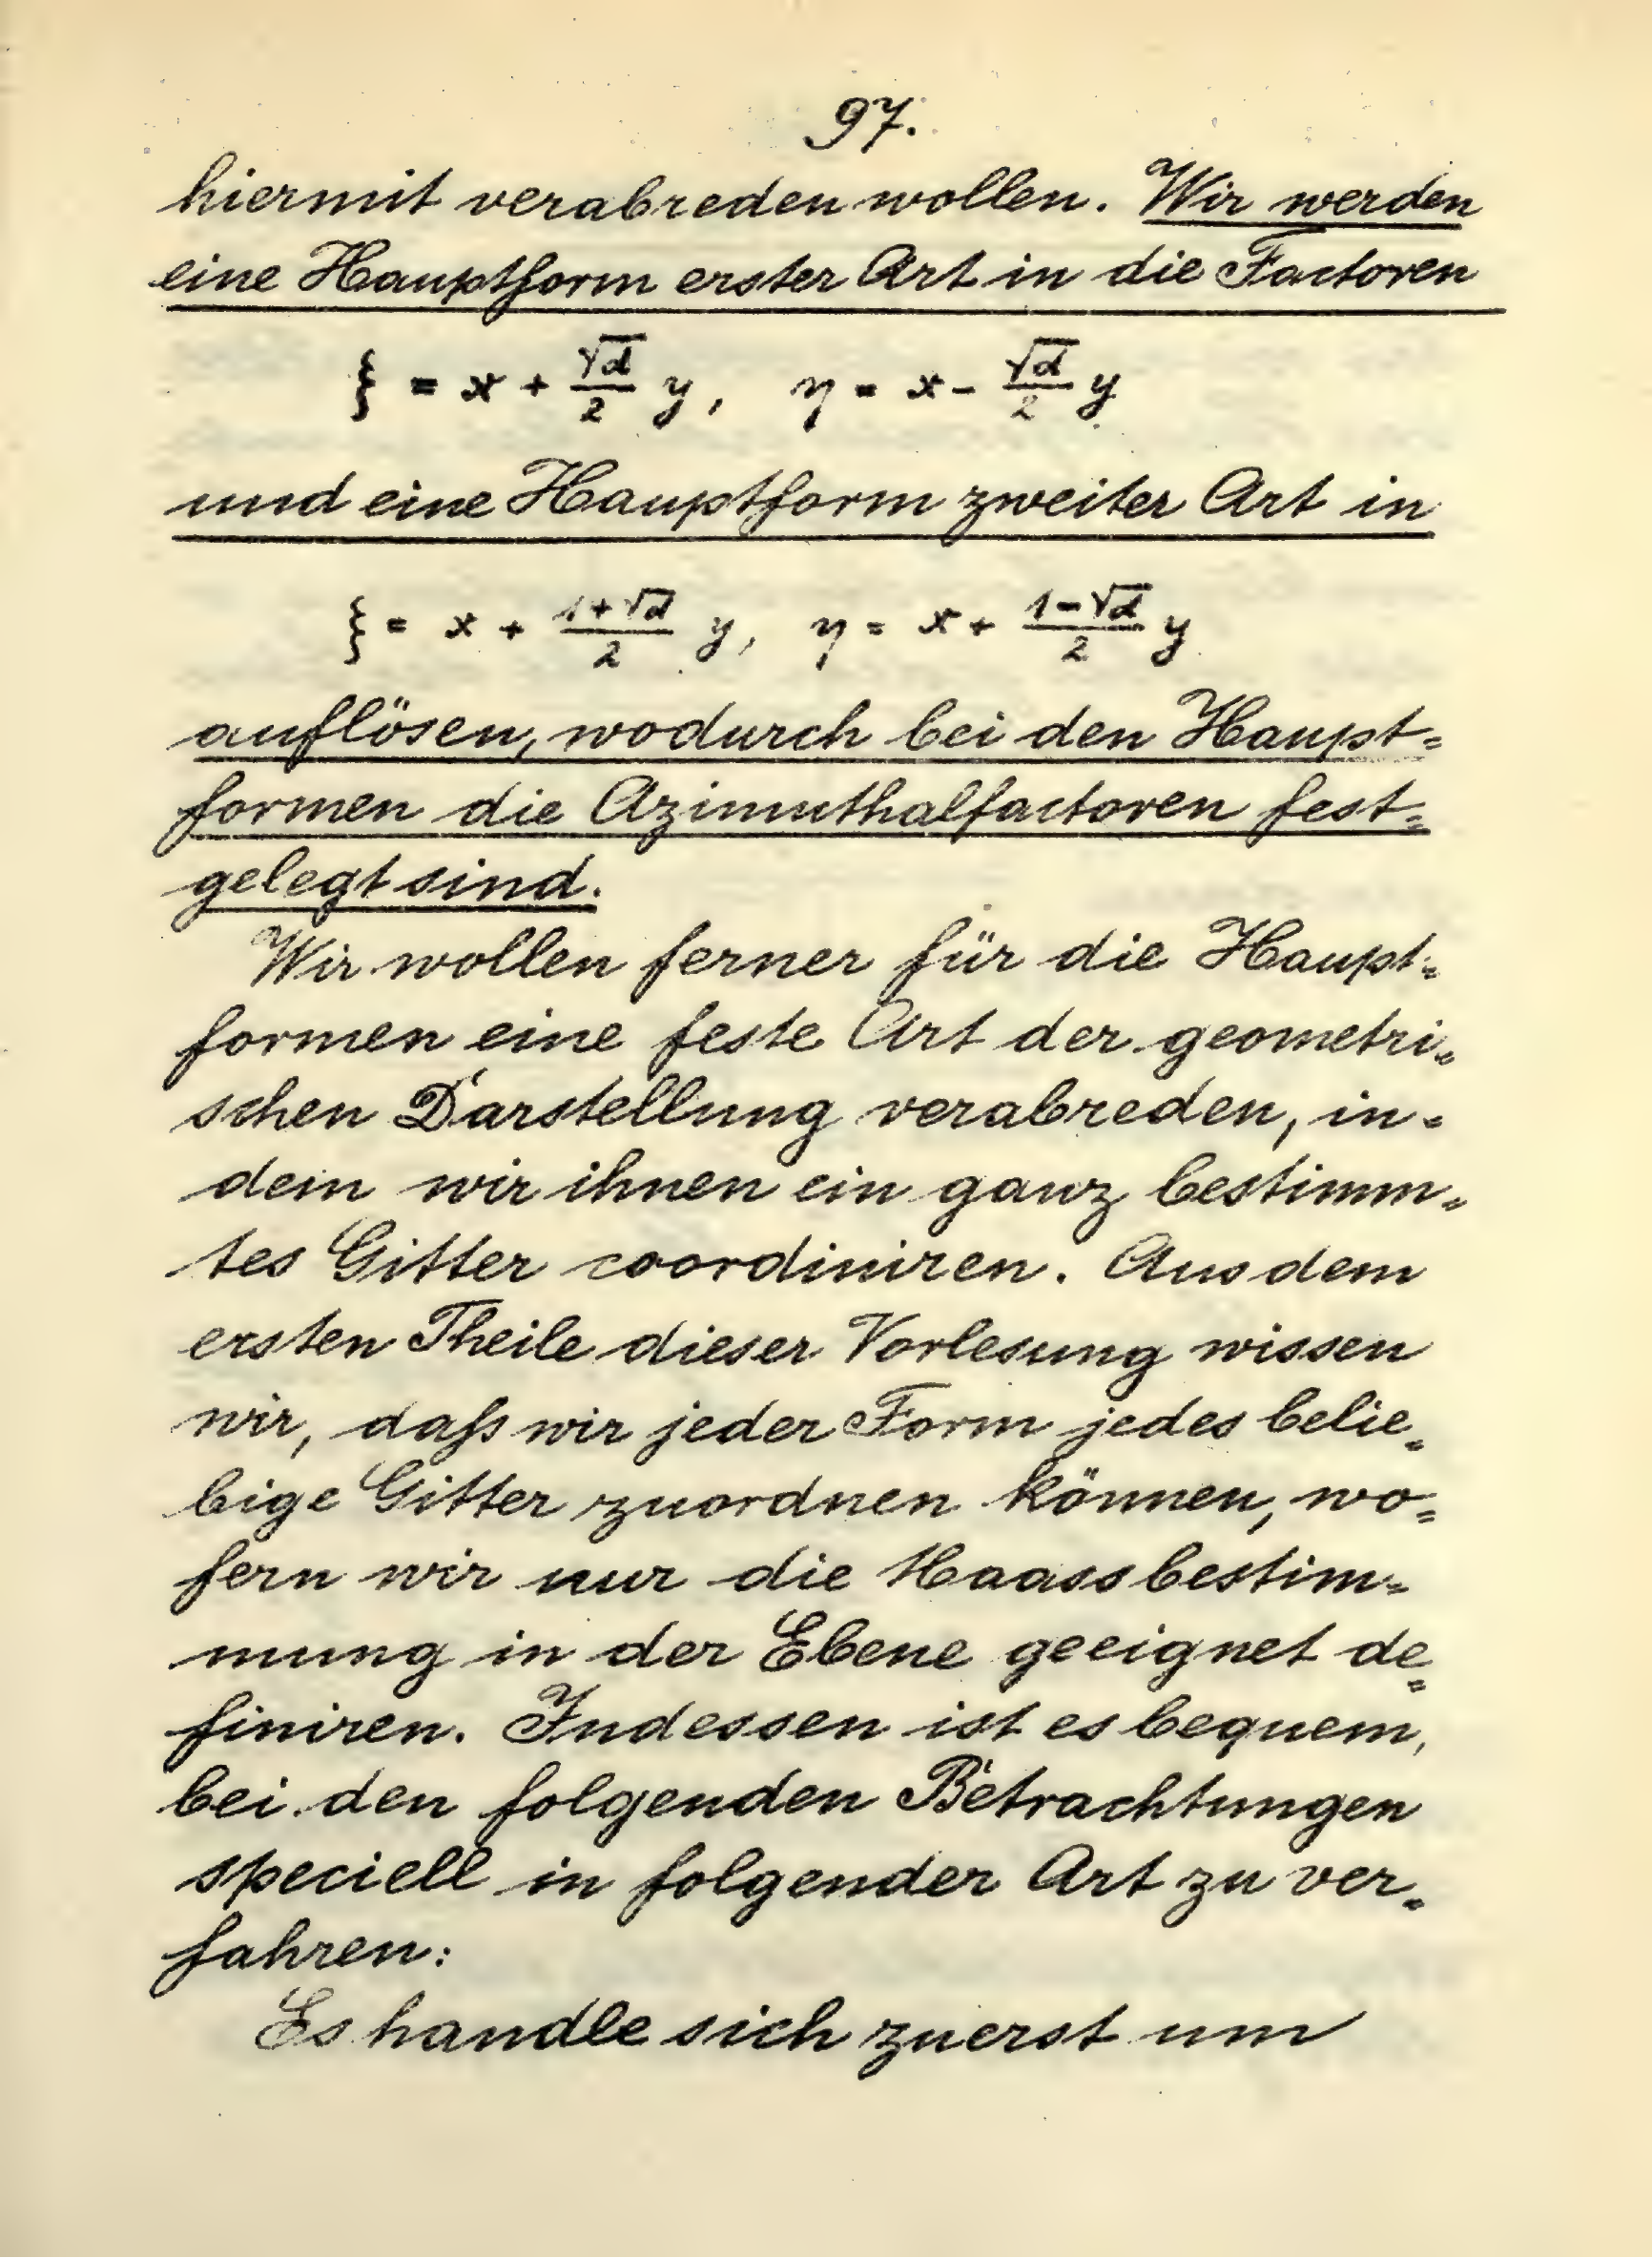 97.
hiermit verabreden wollen. Wir werden
eine Hauptform erster Art in die Factoren
ξ = x + √d/2 y, η = x - √d/2 y
und eine Hauptform zweiter Art in
ξ = x + (1+√d)/2 y, η = x + (1-√d)/2 y
auflösen, wodurch bei den Haupt=
formen die Azimuthalfactoren fest=
gelegt sind.
Wir wollen ferner für die Haupt=
formen eine feste Art der geometri=
schen Darstellung verabreden, in=
dem wir ihnen ein ganz bestimm=
tes Gitter coordiniren. Aus dem
ersten Theile dieser Vorlesung wissen
wir, daß wir jeder Form jedes belie=
bige Gitter zuordnen können, wo=
fern wir nur die Maassbestim=
mung in der Ebene geeignet de=
finiren. Indessen ist es bequem,
bei den folgenden Betrachtungen
speciell in folgender Art zu ver=
fahren:
Es handle sich zuerst um